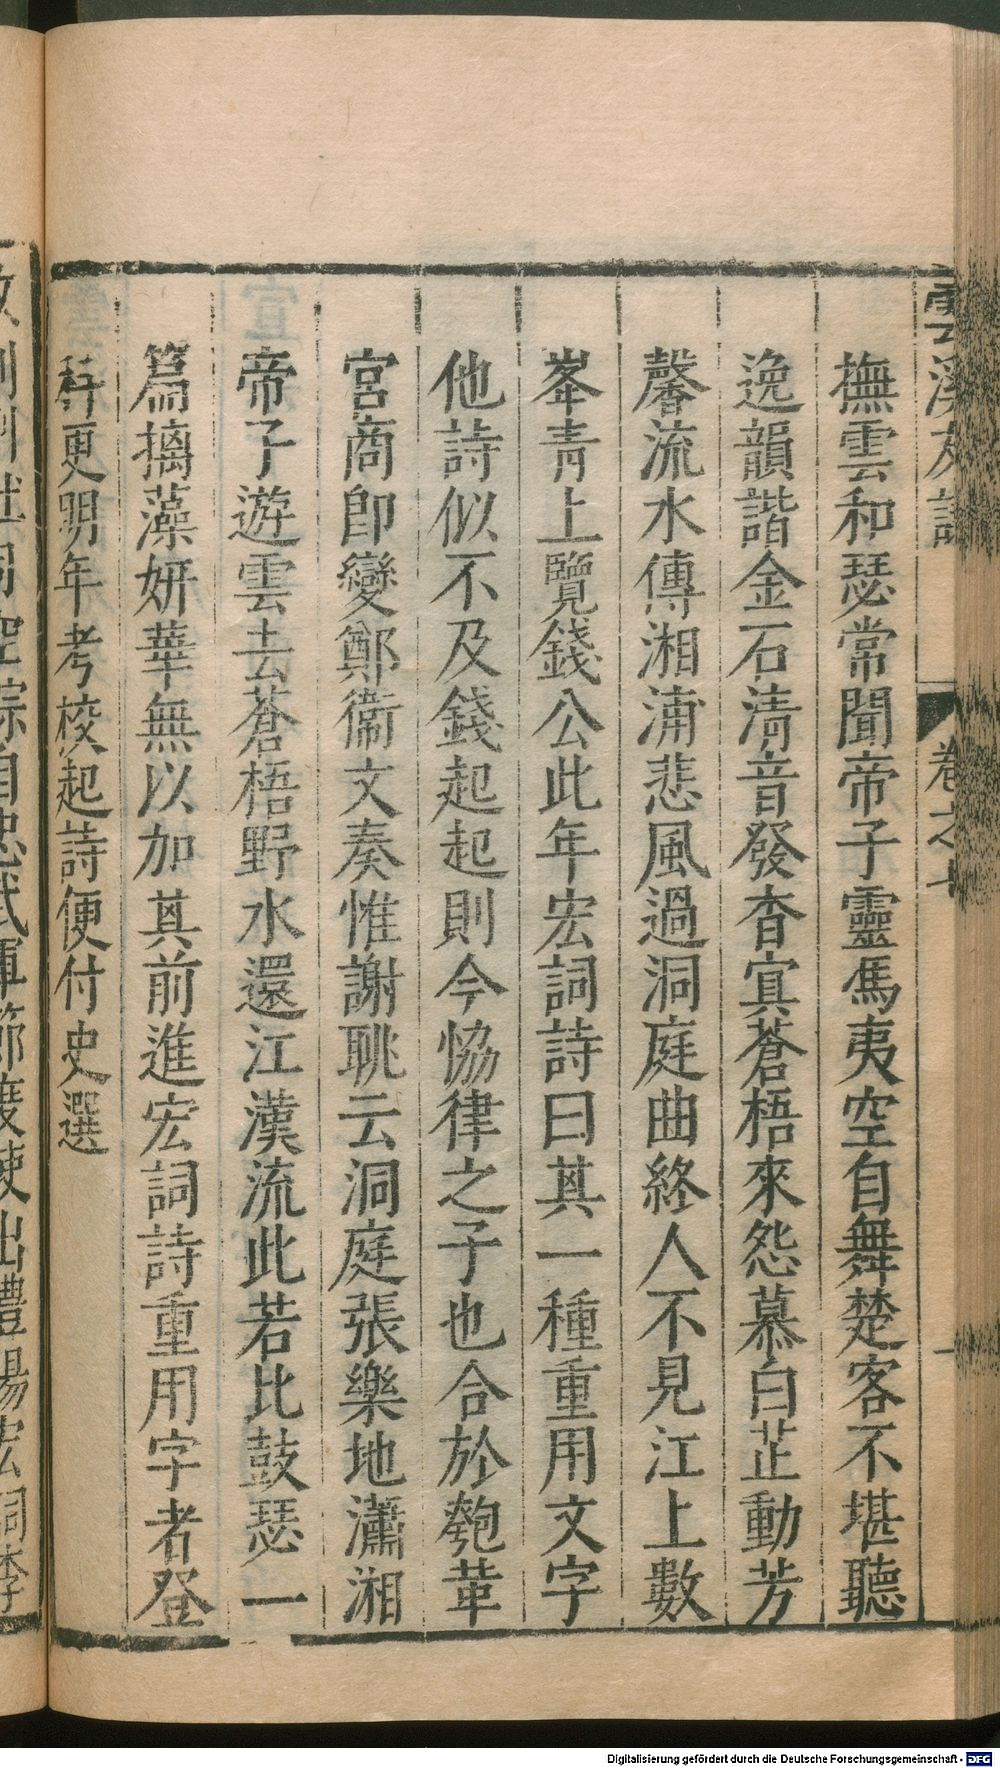 雲溪友議
卷之七
撫雲和瑟常聞帝子靈馮夷空自舞楚客不堪聽
逸韻諧金石清音發杳冥蒼梧來怨慕白芷動芳
馨流水傳湘浦悲風過洞庭曲終人不見江上數
峯青上覽錢公此年宏詞詩曰其一種重用文字
他詩似不及錢起起則今恊律之子也合於匏革
宮商即變鄭衞文奏惟謝朓云洞庭張樂地瀟湘
帝子遊雲去蒼梧野水還江漢流此若比鼓瑟一
篇摛藻妍華無以加其前進宏詞詩重用字者登
科更明年考校起詩便付史選